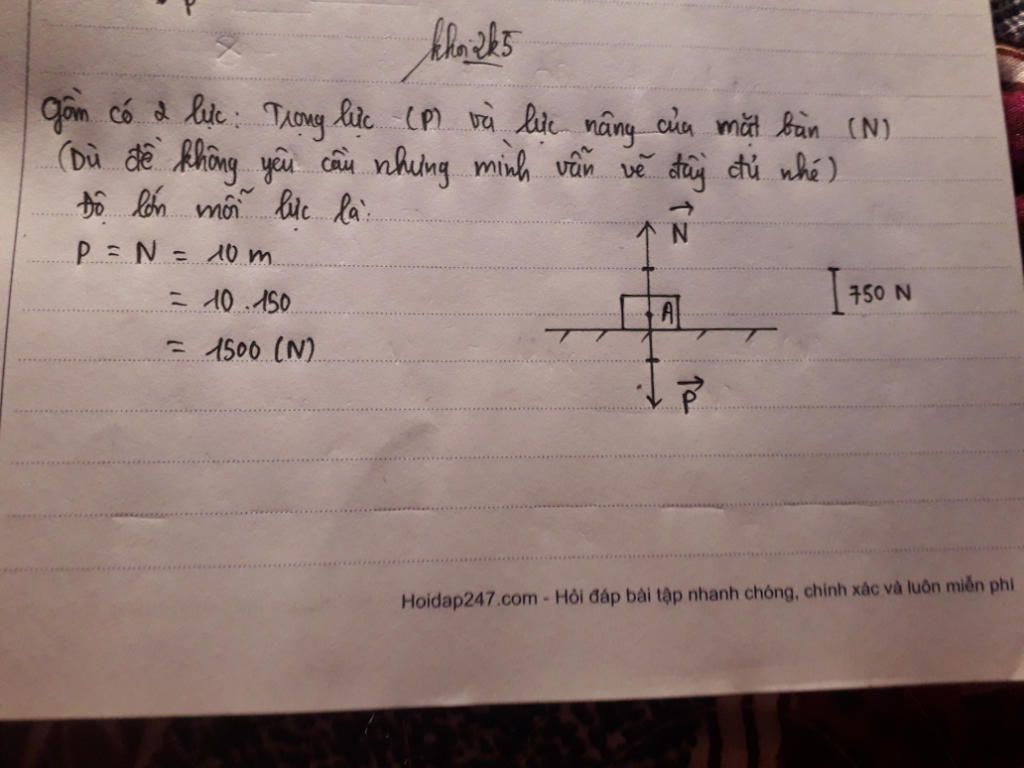 khoi2k5
Gồm có 2 lực: Trọng lực (P) và lực nâng của mặt bàn (N)
(Dù đề không yêu cầu nhưng mình vẫn vẽ đầy đủ nhé)
Độ lớn mỗi lực là:
P = N = 10 m
= 10 . 150
= 1500 (N)
N
A
750 N
P
Hoidap247.com - Hỏi đáp bài tập nhanh chóng, chính xác và luôn miễn phí